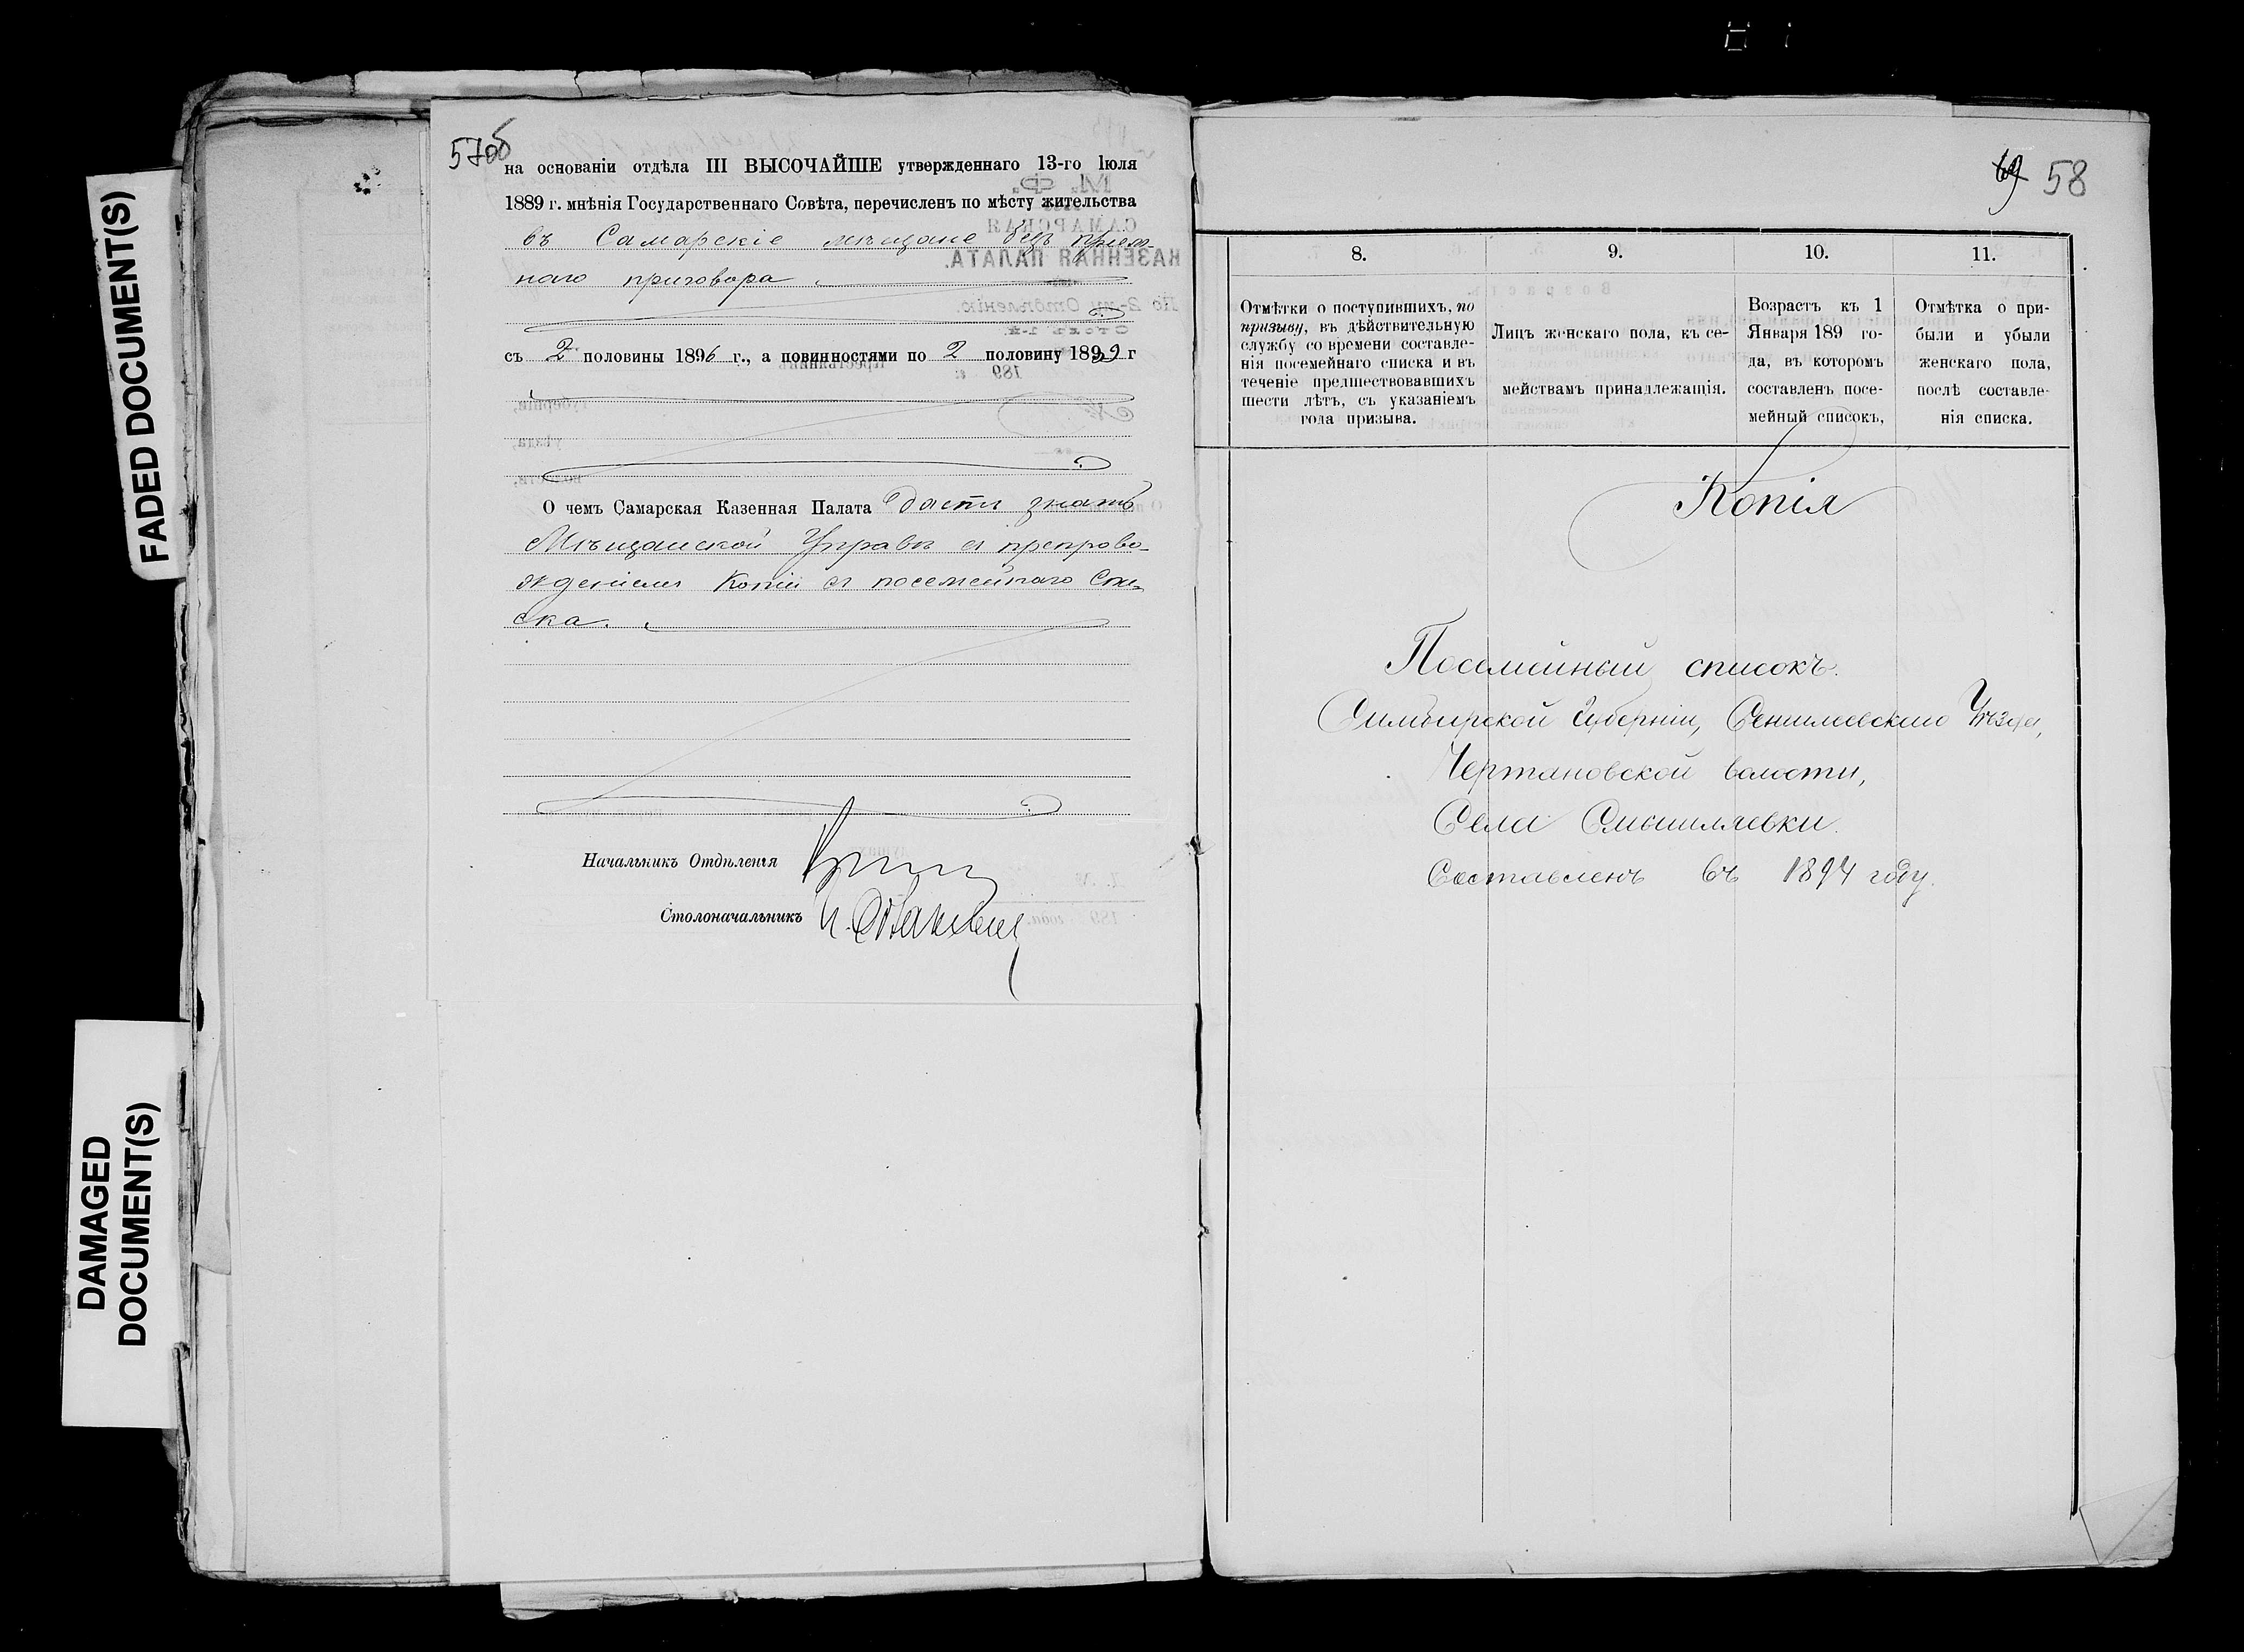 FADED DOCUMENT(S)
DAMAGED
DOCUMENT(S)
57об
на основаніи отдѣла III ВЫСОЧАЙШЕ утвержденнаго 13-го Іюля
1889 г. мнѣнія Государственнаго Совѣта, перечисленъ по мѣсту жительства
въ Самарскіе мѣщане безъ пріем-
наго приговора
съ 2 половины 1896 г., а повинностями по 2 половину 1899 г
О чемъ Самарская Казенная Палата даетъ знать
Мѣщанской Управѣ съ препрово-
жденіемъ Копіи съ посемейнаго Спи-
ска.
Начальникъ Отдѣленія
Столоначальникъ
58
8.
9.
10.
11.
Отмѣтки о поступившихъ, по
призыву, въ дѣйствительную
службу со времени составле-
нія посемейнаго списка и въ
теченіе предшествовавшихъ
шести лѣтъ, съ указаніемъ
года призыва.
Лицъ женскаго пола, къ се-
мействамъ принадлежащія.
Возрастъ къ 1
Января 189 го-
да, въ которомъ
составленъ посе-
мейный списокъ,
Отмѣтка о при-
были и убыли
женскаго пола,
послѣ составле-
нія списка.
Копія
Посемейный списокъ.
Симбирской Губерніи, Сенгилеевскаго Уѣзда,
Чертановской волости,
Села Смышляевки.
Составленъ въ 1894 году.